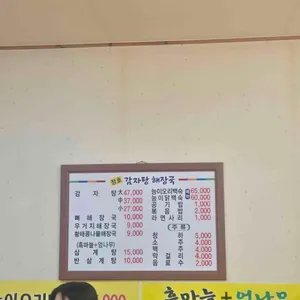 감자탕 해장국
감 자 탕 大 47,000
中 37,000
小 27,000
뼈 해 장 국 10,000
우 거 지 해 장 국 9,000
황태콩나물해장국 9,000
(흑마늘+엄나무)
삼 계 탕 15,000
반 삼 계 탕 10,000
능이오리백숙 65,000
능이닭백숙 60,000
공 기 밥 1,000
볶 음 밥 2,000
라 면 사 리 1,000
(주 류)
청 하 5,000
소 주 4,000
맥 주 4,000
막 걸 리 4,000
음 료 수 2,000
흑마늘+엄나무